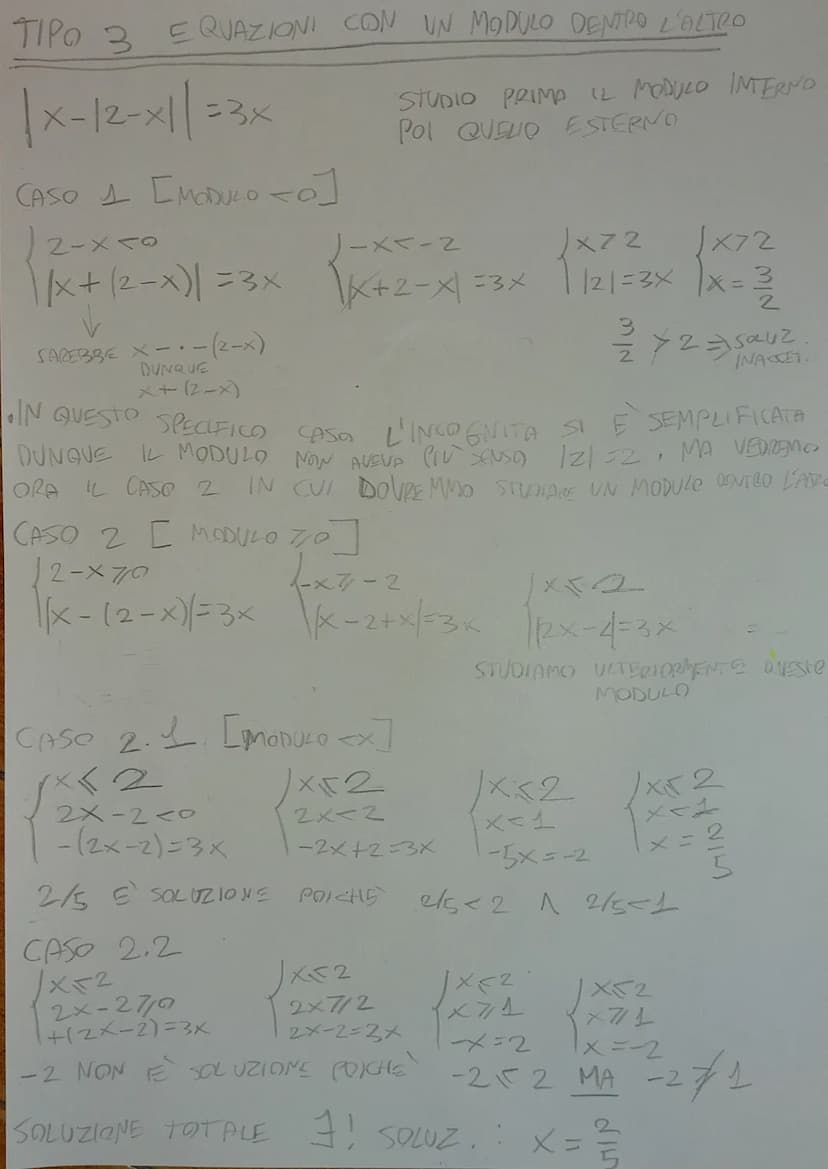 TIPO 3 EQUAZIONI CON UN MODULO DENTRO L'ALTRO
|x-|2-x||=3x
STUDIO PRIMA IL MODULO INTERNO
POI QUELLO ESTERNO
CASO 1 [MODULO <0]
{2-x<0 {-x<-2 {x>2 {x>2
|x+(2-x)|=3x |x+2-x|=3x |2|=3x x=3/2
↓
SAREBBE x-·-(2-x)
DUNQUE
x+(2-x)
3/2 > 2 ⇒ SOLUZ.
INACCET.
•IN QUESTO SPECIFICO CASO L'INCOGNITA SI È SEMPLIFICATA
DUNQUE IL MODULO NON AVEVA PIÙ SENSO |2|=2, MA VEDREMO
ORA IL CASO 2 IN CUI DOVREMMO STUDIARE UN MODULO DENTRO L'ALTRO
CASO 2 [MODULO ⩾0]
{2-x⩾0 {-x⩾-2 {x⩽2
|x-(2-x)|=3x |x-2+x|=3x |2x-2|=3x
STUDIAMO ULTERIORMENTE QUESTO
MODULO
CASO 2.1 [MODULO <x]
{x⩽2 {x⩽2 {x⩽2 {x⩽2
2x-2<0 2x<2 x<1 x<1
-(2x-2)=3x -2x+2=3x -5x=-2 x=2/5
2/5 È SOLUZIONE POICHÈ 2/5<2 ∧ 2/5<1
CASO 2.2
{x⩽2 {x⩽2 {x⩽2 {x⩽2
2x-2⩾0 2x⩾2 x⩾1 x⩾1
+(2x-2)=3x 2x-2=3x -x=2 x=-2
-2 NON È SOLUZIONE POICHÈ -2⩽2 MA -2≱1
SOLUZIONE TOTALE ∃! SOLUZ.: x=2/5